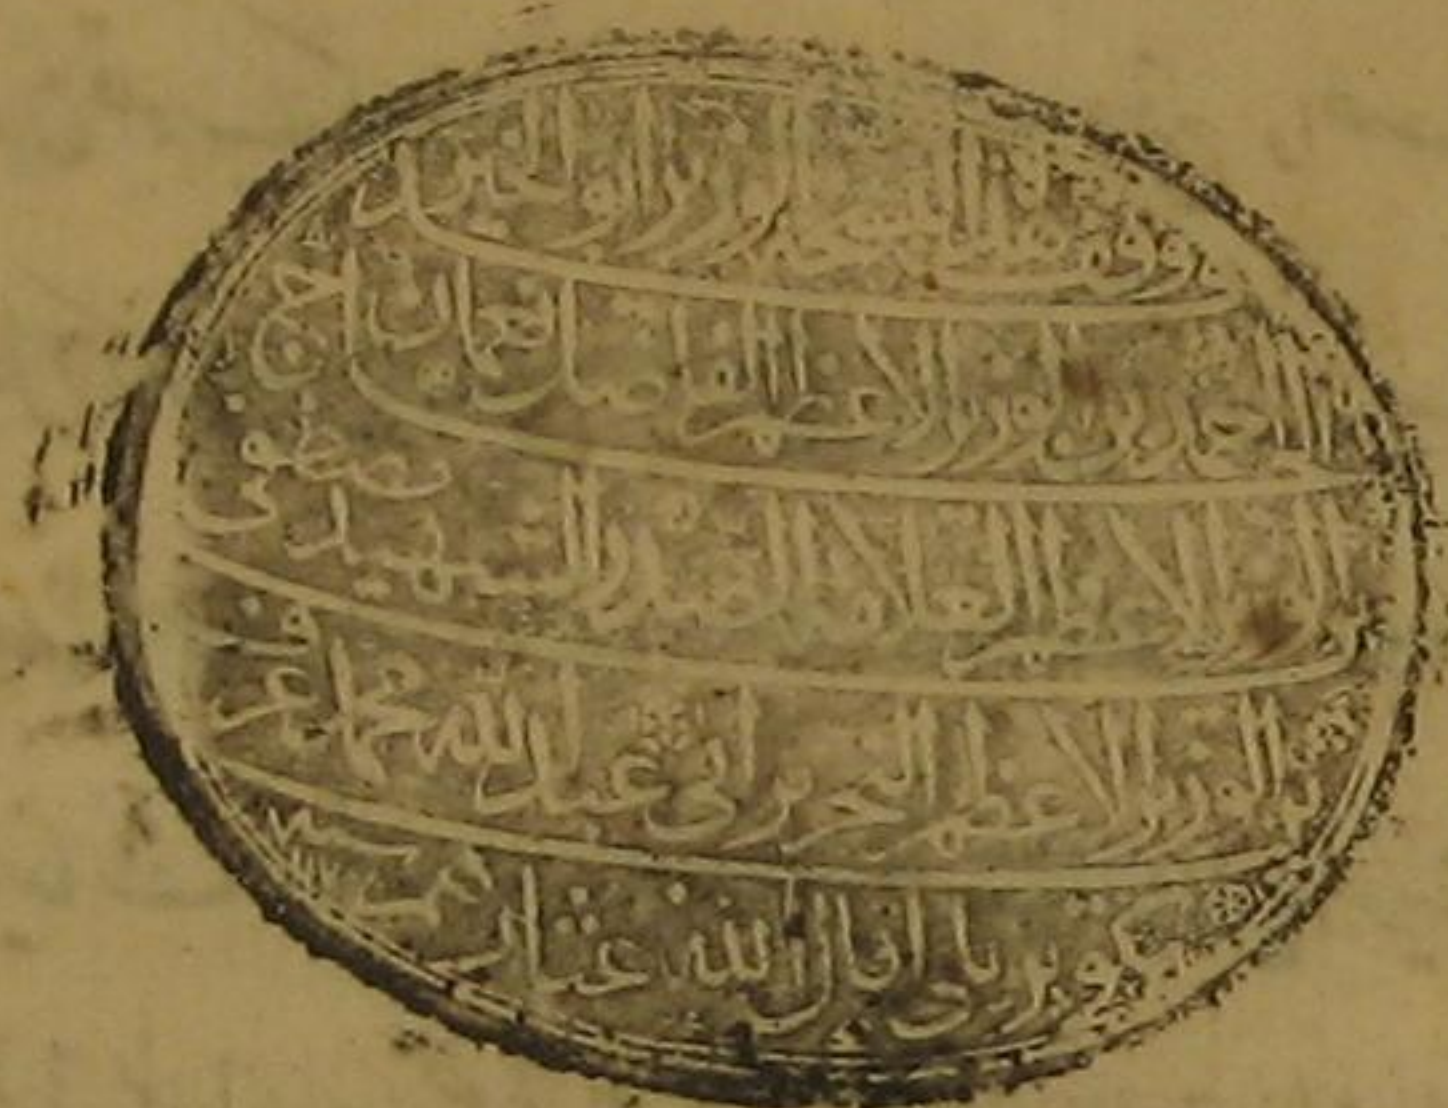 وقف هذه النسخة الوزير ابو الخير
الحاج احمد بن الوزير الاعظم الفاضل نعمان بن اخ
الوزير الاعظم العلامة الصدر الشهيد مصطفى
بن الوزير الاعظم النحرير ابي عبد الله محمد عرف
بكوبريلي اقال الله عثارهم سنة